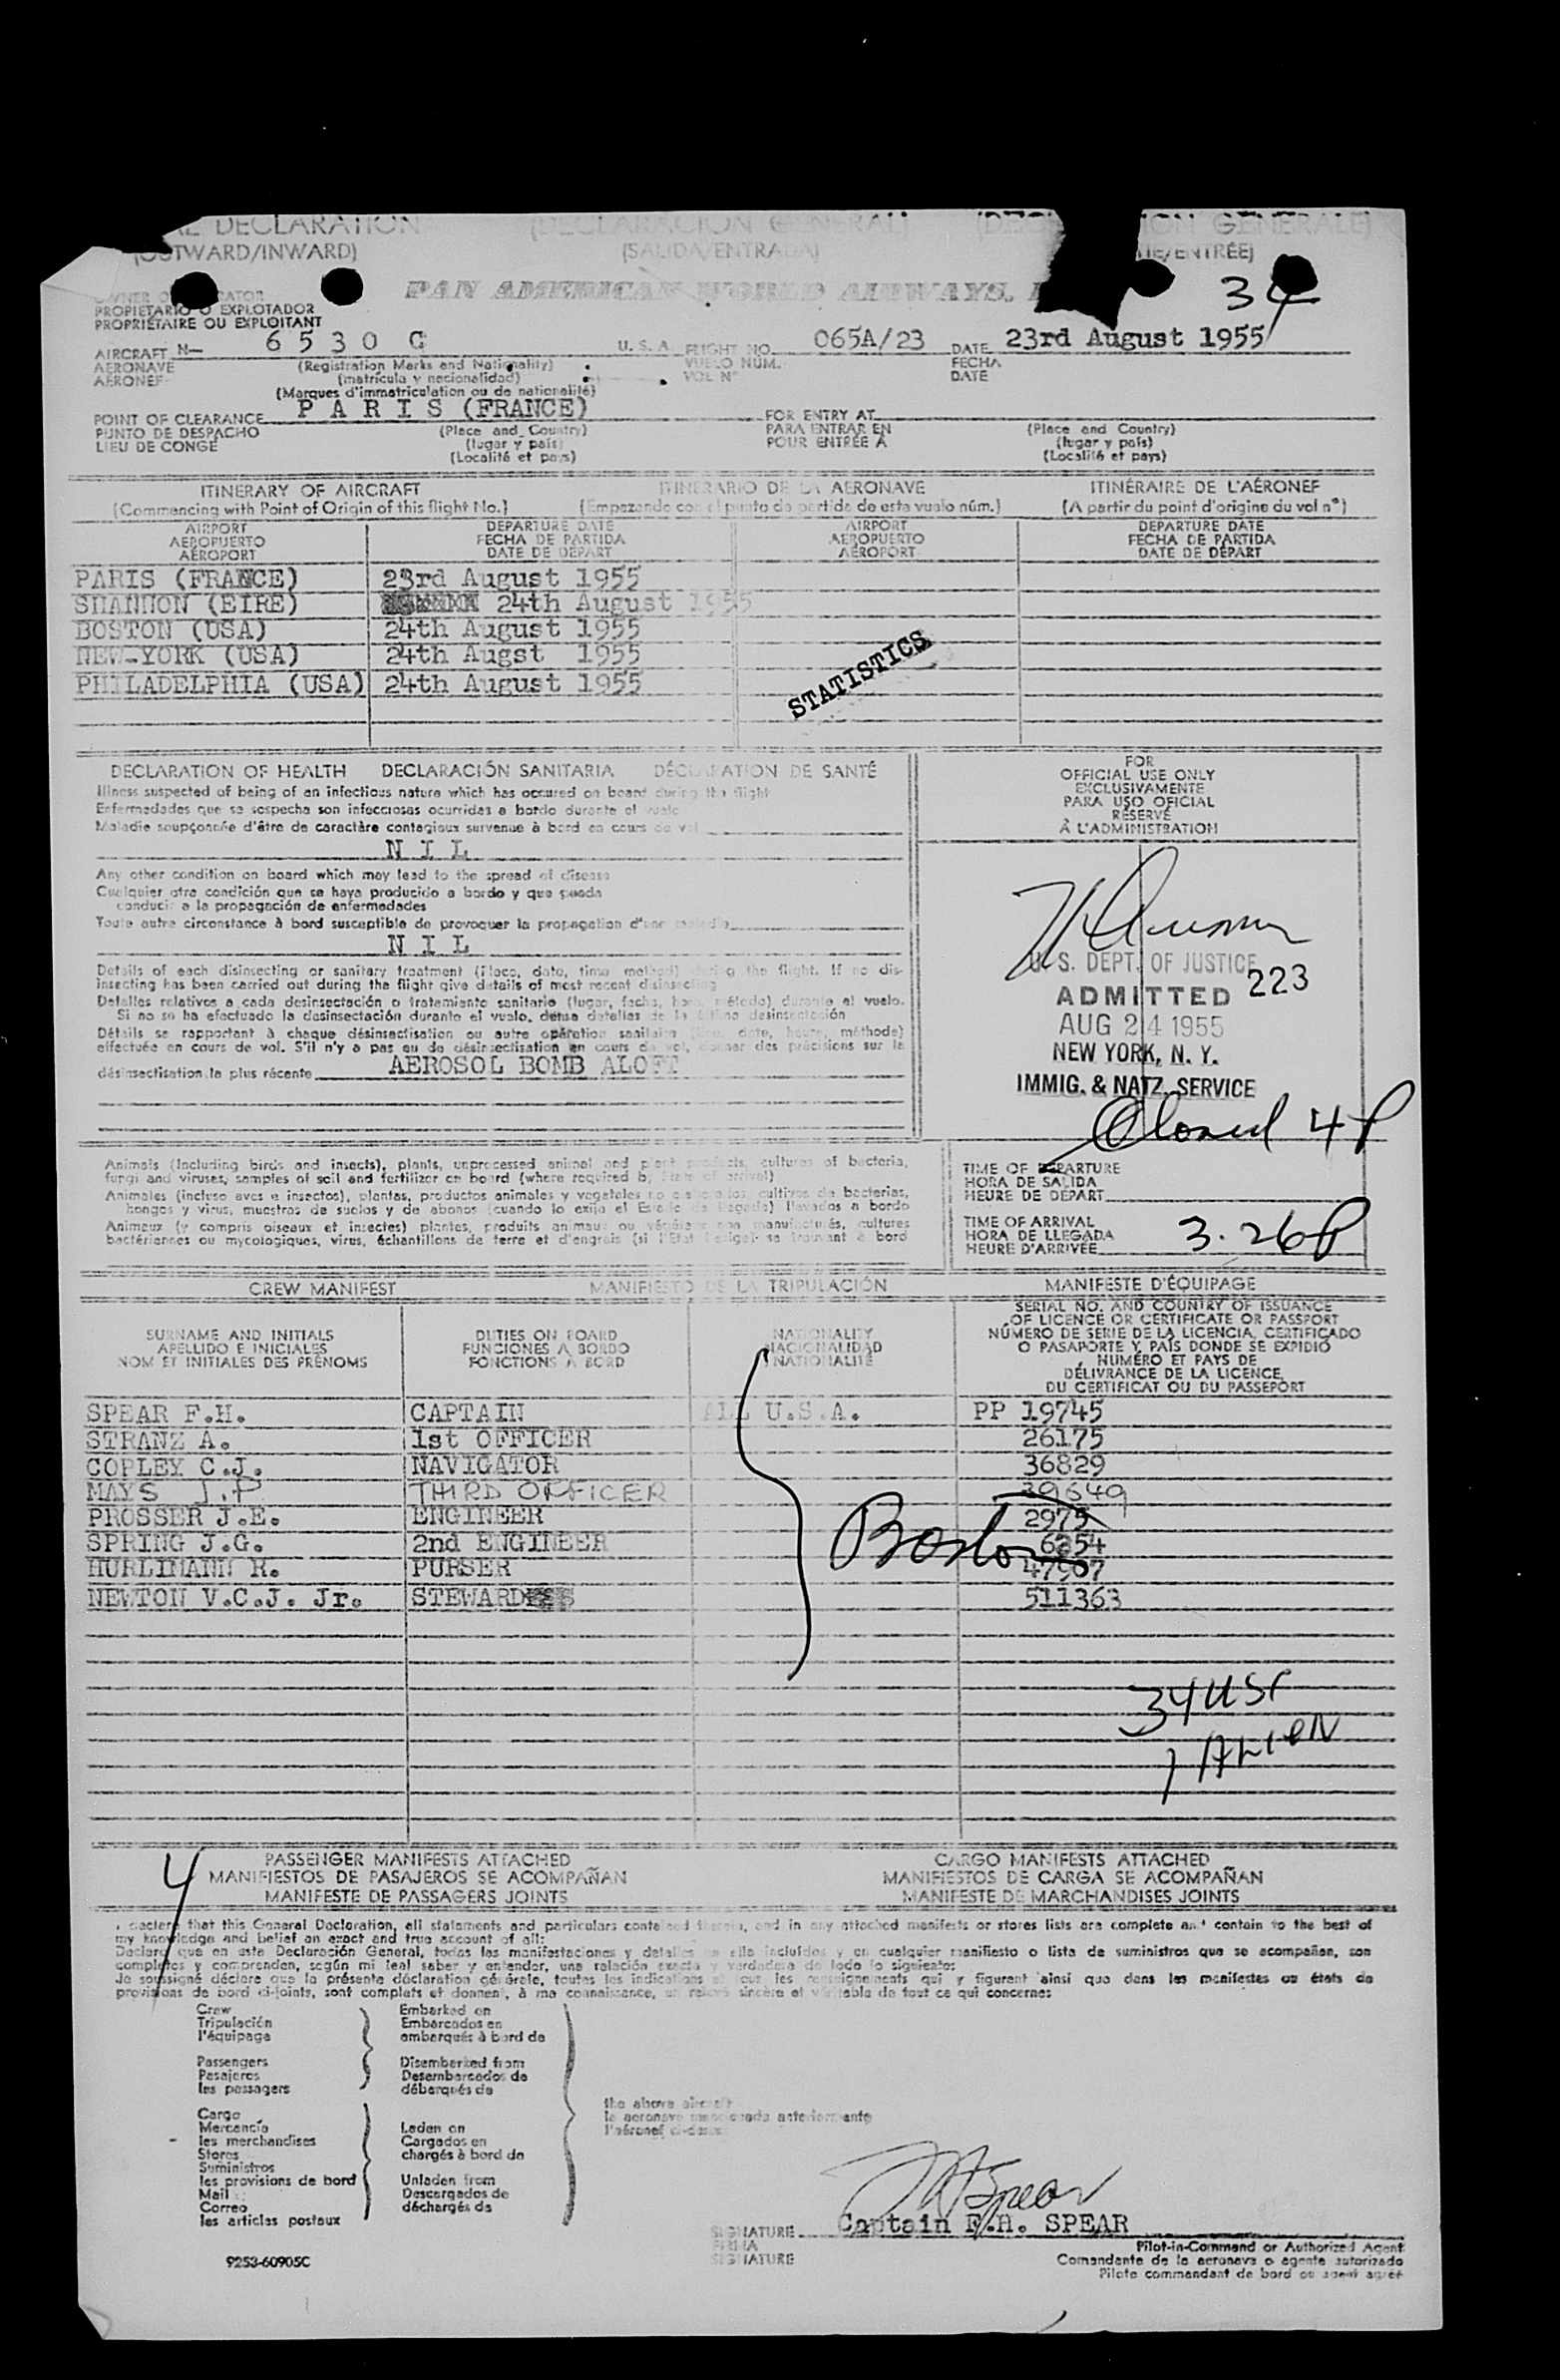 DECLARATION (DECLARACION GENERAL) ION GENERALE)
(OUTWARD/INWARD) (SALIDA/ENTRADA) IE/ENTRÉE)
PAN AMERICAN WORLD AIRWAYS, 34
PROPIETARIO O EXPLOTADOR
PROPRIÉTAIRE OU EXPLOITANT
AIRCRAFT N- 6530 G U. S. A. FLIGHT NO. 065A/23 DATE 23rd August 1955
AERONAVE (Registration Marks and Nationality) VUELO NÚM. FECHA
AÉRONEF (matrícula y nacionalidad) VOL N° DATE
(Marques d'immatriculation ou de nationalité)
POINT OF CLEARANCE P A R I S (FRANCE) FOR ENTRY AT
PUNTO DE DESPACHO (Place and Country) PARA ENTRAR EN (Place and Country)
LIEU DE CONGÉ (lugar y país) POUR ENTRÉE À (lugar y país)
(Localité et pays) (Localité et pays)
ITINERARY OF AIRCRAFT ITINERARIO DE LA AERONAVE ITINÉRAIRE DE L'AÉRONEF
(Commencing with Point of Origin of this flight No.) (Empezando con el punto de partida de esta vuelo núm.) (A partir du point d'origine du vol n°)
AIRPORT DEPARTURE DATE AIRPORT DEPARTURE DATE
AEROPUERTO FECHA DE PARTIDA AEROPUERTO FECHA DE PARTIDA
AÉROPORT DATE DE DÉPART AÉROPORT DATE DE DÉPART
PARIS (FRANCE) 23rd August 1955
SHANNON (EIRE) 24th August 1955
BOSTON (USA) 24th August 1955
NEW-YORK (USA) 24th Augst 1955
PHILADELPHIA (USA) 24th August 1955
STATISTICS
DECLARATION OF HEALTH DECLARACIÓN SANITARIA DÉCLARATION DE SANTÉ
Illness suspected of being of an infectious nature which has occured on board during the flight
Enfermedades que se sospecha son infecciosas ocurridas a bordo durante el vuelo
Maladie soupçonnée d'être de caractère contagieux survenue à bord en cours de vol
N I L
Any other condition on board which may lead to the spread of disease
Cualquier otra condición que se haya producido a bordo y que pueda
conducir a la propagación de enfermedades
Toute autre circonstance à bord susceptible de provoquer la propagation d'une maladie
N I L
Details of each disinsecting or sanitary treatment (place, date, time method) during the flight. If no dis-
insecting has been carried out during the flight give details of most recent disinsecting
Detalles relativos a cada desinsectación o tratamiento sanitario (lugar, fecha, hora, método) durante el vuelo.
Si no se ha efectuado la desinsectación durante el vuelo, dense detalles de la última desinsectación
Détails se rapportant à chaque désinsectisation ou autre opération sanitaire (lieu, date, heure, méthode)
effectuée en cours de vol. S'il n'y a pas eu de désinsectisation en cours de vol, donner des précisions sur la
désinsectisation la plus récente AEROSOL BOMB ALOFT
FOR
OFFICIAL USE ONLY
EXCLUSIVAMENTE
PARA USO OFICIAL
RÉSERVÉ
À L'ADMINISTRATION
U. S. DEPT. OF JUSTICE
ADMITTED 223
AUG 24 1955
NEW YORK, N. Y.
IMMIG. & NATZ. SERVICE
Closed 4P
Animals (Including birds and insects), plants, unprocessed animal and plant products, cultures of bacteria,
fungi and viruses, samples of soil and fertilizer on board (where required by State of arrival)
Animales (incluso aves e insectos), plantas, productos animales y vegetales no elaborados, cultivos de bacterias,
hongos y virus, muestras de suelos y de abonos (cuando lo exija el Estado de llegada) llevados a bordo
Animaux (y compris oiseaux et insectes) plantes, produits animaux ou végétaux non manufacturés, cultures
bactériennes ou mycologiques, virus, échantillons de terre et d'engrais (si l'État l'exige) se trouvant à bord
TIME OF DEPARTURE
HORA DE SALIDA
HEURE DE DÉPART
TIME OF ARRIVAL
HORA DE LLEGADA 3.26P
HEURE D'ARRIVÉE
CREW MANIFEST MANIFIESTO DE LA TRIPULACIÓN MANIFESTE D'ÉQUIPAGE
SURNAME AND INITIALS
APELLIDO E INICIALES
NOM ET INITIALES DES PRÉNOMS
DUTIES ON BOARD
FUNCIONES A BORDO
FONCTIONS A BORD
NATIONALITY
NACIONALIDAD
NATIONALITÉ
SERIAL NO. AND COUNTRY OF ISSUANCE
OF LICENCE OR CERTIFICATE OR PASSPORT
NÚMERO DE SERIE DE LA LICENCIA, CERTIFICADO
O PASAPORTE Y PAÍS DONDE SE EXPIDIÓ
NUMÉRO ET PAYS DE
DÉLIVRANCE DE LA LICENCE,
DU CERTIFICAT OU DU PASSEPORT
SPEAR F.H. CAPTAIN ALL U.S.A. PP 19745
STRANZ A. 1st OFFICER 26175
COPLEY C.J. NAVIGATOR 36829
MAYS J.P THIRD OFFICER 39649
PROSSER J.E. ENGINEER 2975
SPRING J.G. 2nd ENGINEER 6254
HURLIMANN R. PURSER 47907
NEWTON V.C.J. Jr. STEWARD 511363
Boston
34 USC
1 ALIEN
4
PASSENGER MANIFESTS ATTACHED CARGO MANIFESTS ATTACHED
MANIFIESTOS DE PASAJEROS SE ACOMPAÑAN MANIFIESTOS DE CARGA SE ACOMPAÑAN
MANIFESTE DE PASSAGERS JOINTS MANIFESTE DE MARCHANDISES JOINTS
I declare that this General Declaration, all statements and particulars contained therein, and in any attached manifests or stores lists are complete and contain to the best of
my knowledge and belief an exact and true account of all:
Declaro que en este Declaración General, todas las manifestaciones y detalles en ella incluídos y en cualquier manifiesto o lista de suministros que se acompañan, son
completos y comprenden, según mi leal saber y entender, una relación exacta y verdadera de todo lo siguiente:
Je soussigné déclare que la présente déclaration générale, toutes les indications et tout les renseignements qui y figurent ainsi que dans les manifestes ou états de
provisions de bord ci-joints, sont complets et donnent, à ma connaissance, un relevé sincère et véritable de tout ce qui concerne:
Crew Embarked on
Tripulación Embarcados en
l'équipage embarqués à bord de
Passengers Disembarked from
Pasajeros Desembarcados de
les passagers débarqués de
the above aircraft
la aeronave mencionada anteriormente
l'aéronef ci-dessus
Cargo
Mercancía Laden on
les merchandises Cargados en
Stores chargés à bord de
Suministros
les provisions de bord Unladen from
Mail Descargados de
Correo déchargés de
les articles postaux
F H Spear
SIGNATURE Captain F.H. SPEAR
FIRMA Pilot-in-Command or Authorized Agent
SIGNATURE Comandante de la aeronave o agente autorizado
Pilote commandant de bord ou agent agréé
9253-60905C